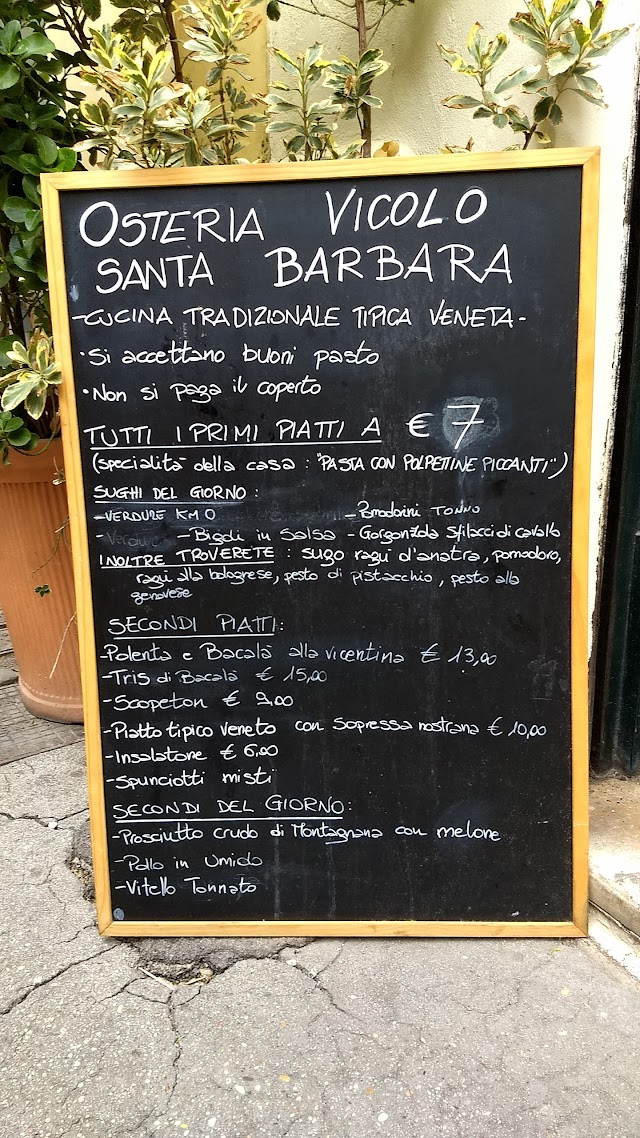 OSTERIA VICOLO
SANTA BARBARA
-CUCINA TRADIZIONALE TIPICA VENETA-
•Si accettano buoni pasto
•Non si paga il coperto
TUTTI I PRIMI PIATTI A € 7
(specialità della casa : "PASTA CON POLPETTINE PICCANTI")
SUGHI DEL GIORNO :
-VERDURE KM 0 -Pomodorini TONNO
- Verdure -Bigoli in Salsa -Gorgonzola Sfilacci di cavallo
INOLTRE TROVERETE : sugo ragù d'anatra, pomodoro,
ragù alla bolognese, pesto di pistacchio, pesto alla
genovese
SECONDI PIATTI:
-Polenta e Bacalà alla vicentina € 13,00
-Tris di Bacalà € 15,00
-Scopeton € 9,00
-Piatto tipico veneto con Sopressa nostrana € 10,00
-Insalatone € 6,00
-Spunciotti misti
SECONDI DEL GIORNO:
-Prosciutto crudo di Montagnana con melone
-Pollo in Umido
-Vitello Tonnato